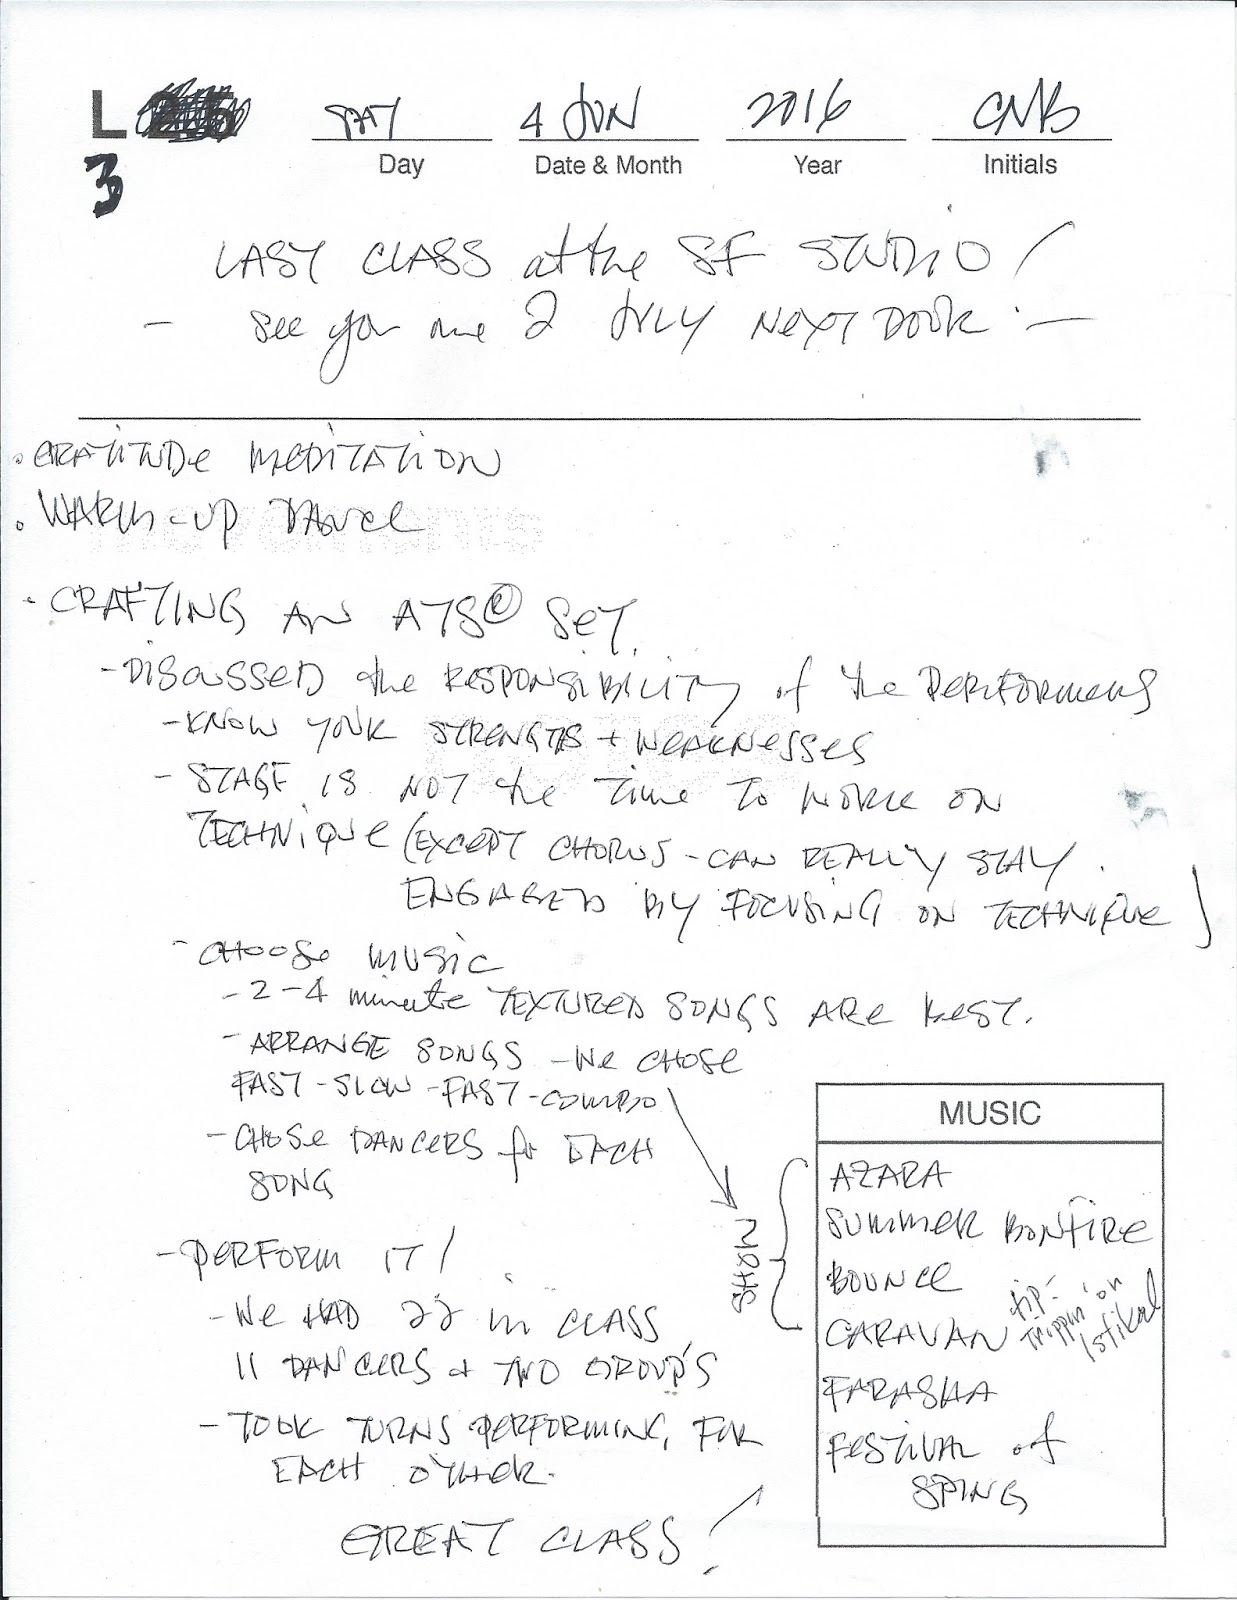 L
3
SAT 4 JUN 2016 CNB
Day Date & Month Year Initials
LAST CLASS at the SF STUDIO!
- See you one 2 JULY NEXT DOOR. -
. GRATITUDE MEDITATION
. WARM-UP DANCE
. CRAFTING AN ATS® SET.
- DISCUSSED the RESPONSIBILITY of the PERFORMERS
- KNOW YOUR STRENGTHS + WEAKNESSES
- STAGE IS NOT the TIME TO WORK ON
TECHNIQUE (EXCEPT CHORUS - CAN REALLY STAY
ENGAGED BY FOCUSING ON TECHNIQUE)
- CHOOSE MUSIC
- 2-4 minute TEXTURED SONGS ARE BEST.
- ARRANGE SONGS - We CHOSE
FAST-SLOW-FAST-COMBO
- CHOSE DANCERS for EACH
SONG
- PERFORM IT!
- We HAD 22 in CLASS
11 DANCERS + TWO GROUP'S
- TOOK TURNS PERFORMING, FOR
EACH OTHER.
GREAT CLASS!
SHOW
MUSIC
AZARA
SUMMER BONFIRE
BOUNCE
CARAVAN
tip-
Trippin' on
Istikal
FARASHA
FESTIVAL of
SPING